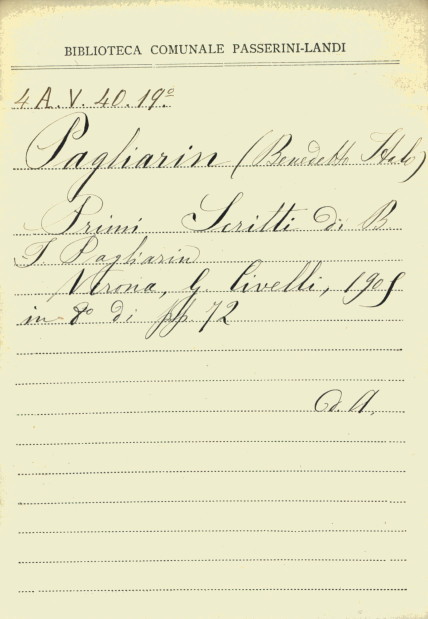 BIBLIOTECA COMUNALE PASSERINI-LANDI
4 A. V. 40. 19º
Pagliarin (Benedetto Italo)
Primi Scritti di B
I. Pagliarin
Verona, G Civelli, 1905
in 8º di pp 72